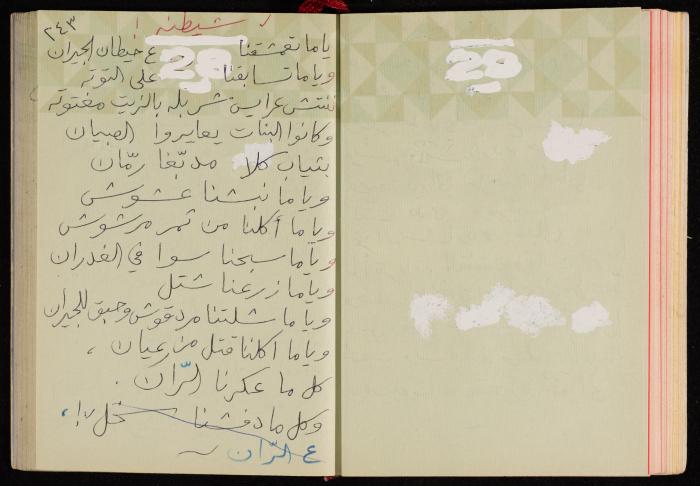 ٢٤٣
شيطنه !
ياما تعمشقنا ع خيطان الجيران
وياما تسابقنا على التوته
ننتش عرايس شربله بالزيت مغتوته
وكانوا البنات يعايروا الصبيان
بتياب كلا مدبّغا رمّان
وياما نبشنا عشوش
وياما أكلنا من تمر مرشوش
وياما سبحنا سوا في الغدران
وياما زرعنا شتل
وياما شلتنا مردقوش وحبق للجيران
وياما اكلنا قتل من رعيان ،
كل ما عكرنا الرّان .
وكل ما دفشنا
ع الرّان
28
28